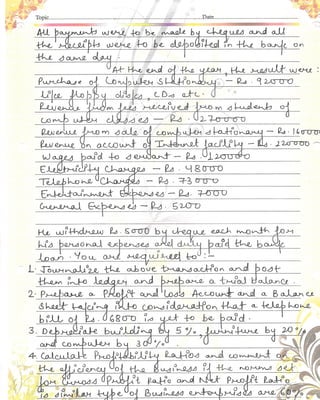 Topic Date
All payments were to be made by cheques and all
the receipts were to be deposited in the bank on
the same day
At the end of the year, the result were :
Purchase of Computer Stationary - Rs. 92000
like floppy disks, CDs etc.
Revenue from fees received from students of
computer classes - Rs. 270000
Revenue from sale of computer stationary - Rs. 16000
Revenue on account of Internet facility - Rs. 220000 -
Wages paid to servant - Rs. 120000
Electricity Charges - Rs. 48000
Telephone Charges - Rs. 73000
Entertainment Expenses - Rs. 7000
General Expenses - Rs. 5200
He withdrew Rs. 5000 by cheque each month for
his personal expenses and duly paid the bank
loan. You are required to :-
1. Journalize the above transaction and post
them into ledger and prepare a trial balance.
2. Prepare a Profit and Loss Account and a Balance
Sheet taking into consideration that a telephone
bill of Rs. 6800 is yet to be paid.
3. Depreciate building by 5%, furniture by 20%
and computer by 30%.
4. Calculate Profitability Ratios and comment on
the efficiency of the business if the norms set
for Gross Profit Ratio and Net Profit Ratio
is similar type of Business enterprises are 60%